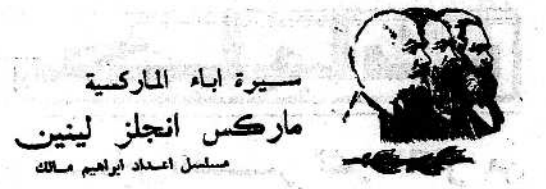 سيرة اباء الماركسية
ماركس انجلز لينين
مسلسل اعداد ابراهيم مالك